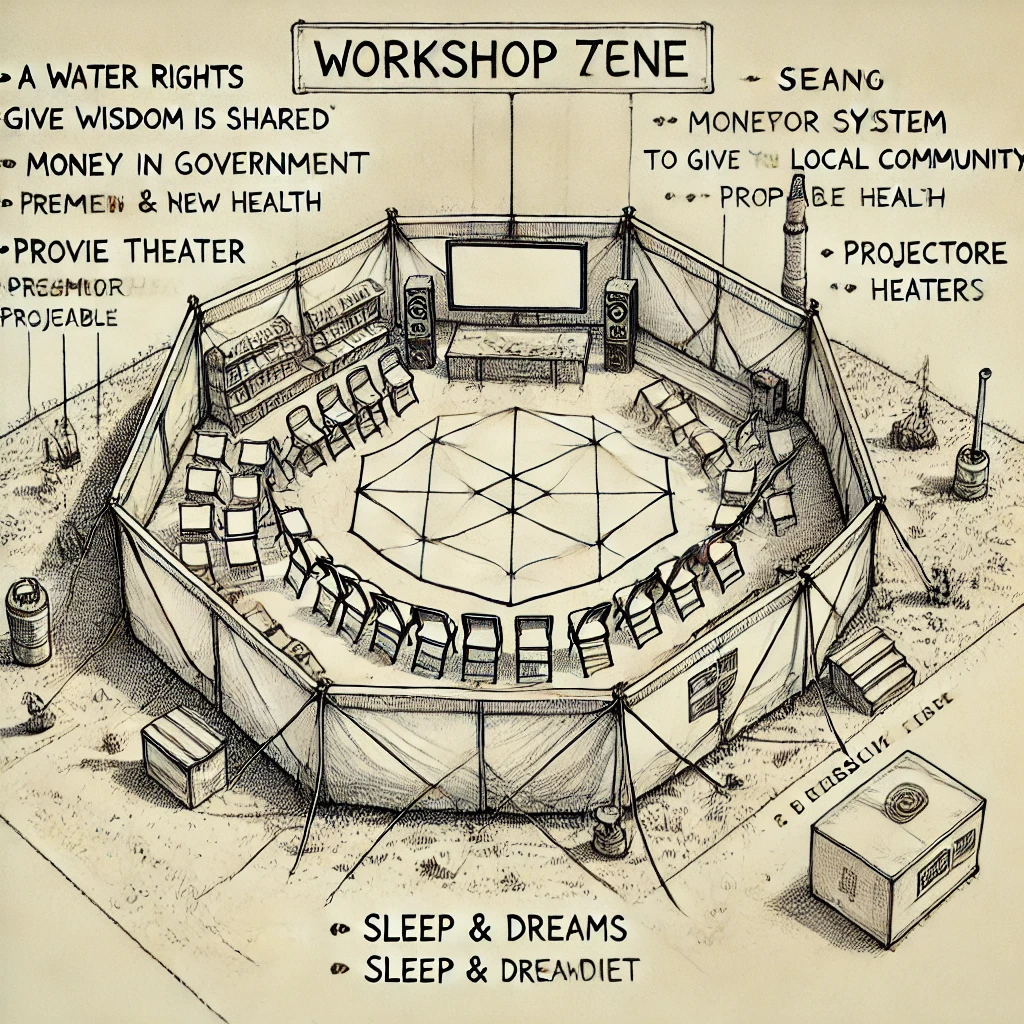 WORKSHOP ZENE
A WATER RIGHTS
GIVE WISDOM IS SHARED
MONEY IN GOVERNMENT
& NEW HEALTH
PROVIE THEATER
PROJEABLE
SEANG
MONEPOR SYSTEM
TO GIVE LOCAL COMMUNITY
HEALH
PROJECTORE
HEATERS
SLEEP & DREAMS
SLEEP &